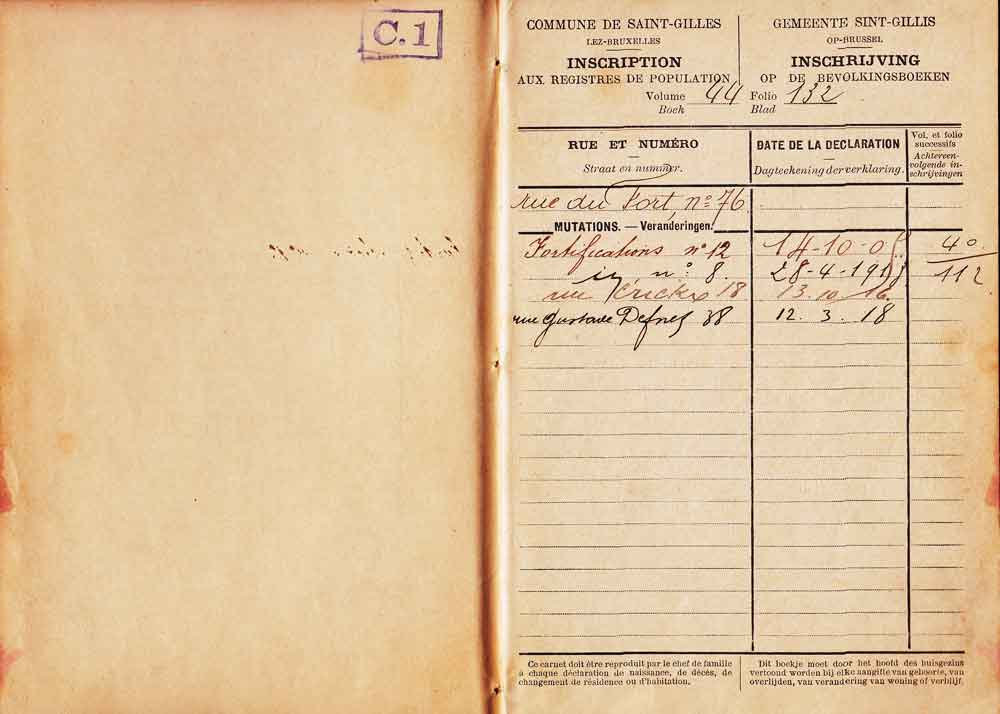 C.1
COMMUNE DE SAINT-GILLES
LEZ-BRUXELLES
INSCRIPTION
AUX REGISTRES DE POPULATION
GEMEENTE SINT-GILLIS
OP-BRUSSEL
INSCHRIJVING
OP DE BEVOLKINGSBOEKEN
Volume 44 Folio 132
Boek Blad
RUE ET NUMÉRO
Straat en nummer.
DATE DE LA DECLARATION
Dagteekening der verklaring.
Vol. et folio
successifs
Achtereen-
volgende in-
schrijvingen
rue du Fort, nº 76
MUTATIONS. — Veranderingen.
Fortifications nº 12 14-10-0 40
nº 8. 28-4-191 112
rue 18 13. 10 16.
rue Gustave Defnet 38 12. 3. 18
Ce carnet doit être reproduit par le chef de famille
à chaque déclaration de naissance, de décès, de
changement de résidence ou d'habitation.
Dit boekje moet door het hoofd des huisgezins
vertoond worden bij elke aangifte van geboorte, van
overlijden, van verandering van woning of verblijf.